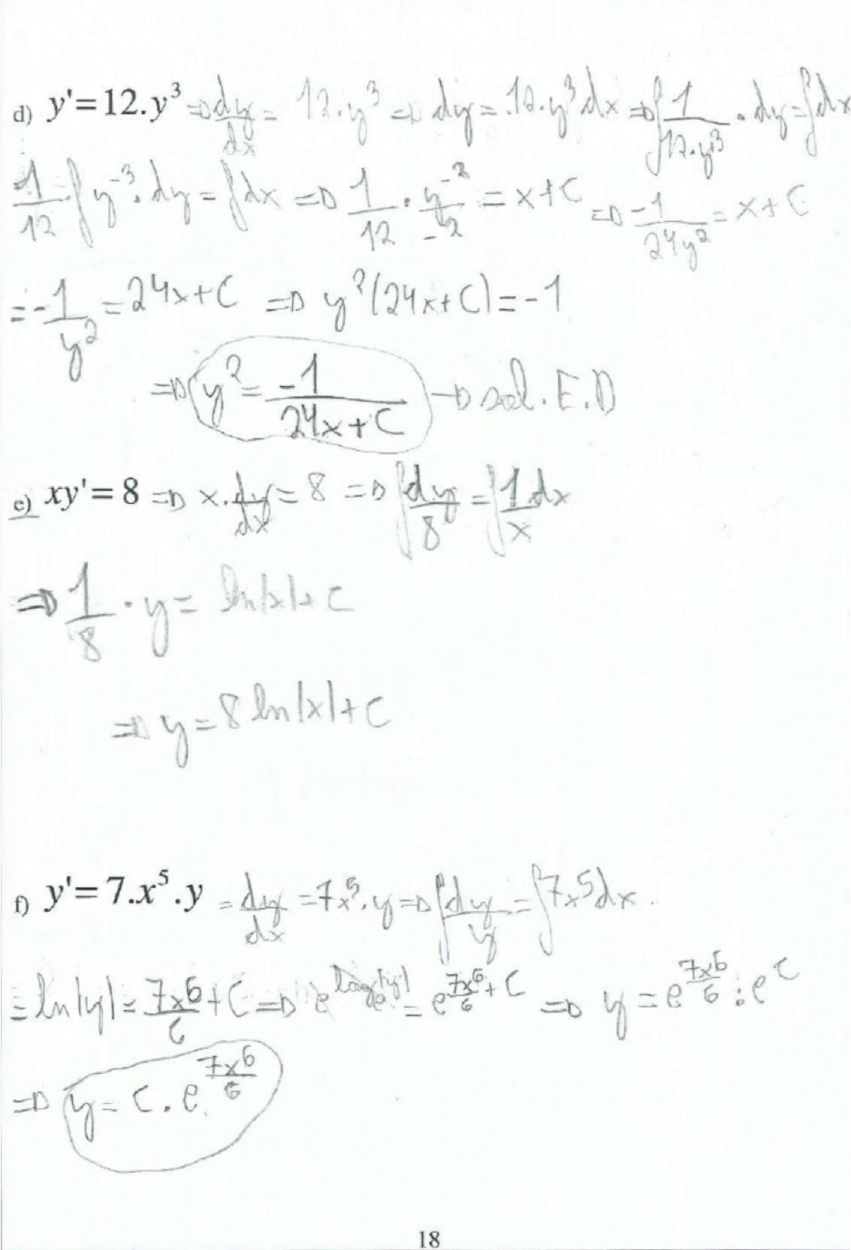 d) y'=12.y³ ⇒ dy/dx = 12.y³ ⇒ dy = 12.y³dx ⇒ ∫1/(12.y³) . dy = ∫dx
1/12 ∫y⁻³ . dy = ∫dx ⇒ 1/12 . y⁻²/-2 = x+C ⇒ -1/(24y²) = x+C
= -1/y² = 24x+C ⇒ y²(24x+C) = -1
⇒ y² = -1/(24x+C) → sol. E.D
e) xy'=8 ⇒ x.dy/dx = 8 ⇒ ∫dy/8 = ∫1/x dx
⇒ 1/8 . y = ln|x|+C
⇒ y = 8 ln|x|+C
f) y'=7.x⁵.y = dy/dx = 7x⁵.y ⇒ ∫dy/y = ∫7x⁵dx.
= ln|y| = 7x⁶/6 + C ⇒ e^(logₑ|y|) = e^(7x⁶/6 + C) ⇒ y = e^(7x⁶/6) . e^C
⇒ y = C . e^(7x⁶/6)
18